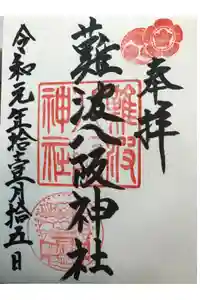 奉拝
難波八阪神社
令和元年拾壹月拾五日
難波
神社